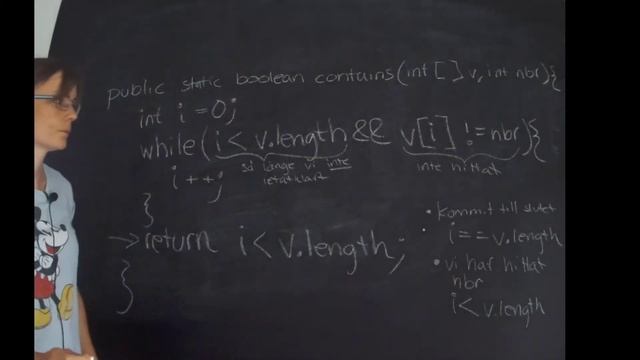 public static boolean contains(int [ ] v, int nbr){
int i = 0;
while (i < v.length && v[i] != nbr){
så länge vi inte
inte hittat
letat klart
i ++;
}
→ return i < v.length;
}
• kommit till slutet
i == v.length
• vi har hittat
nbr
i < v.length